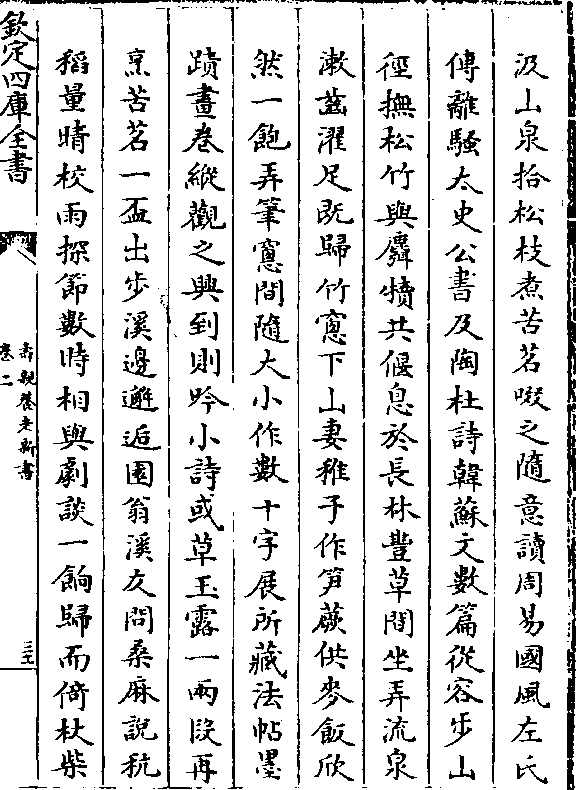 汲山泉拾松枝煮苦茗啜之隨意讀周易國風左氏
傳離騷太史公書及陶杜詩韓蘇文數篇從容步山
徑撫松竹與麛犢共偃息於長林豐草間坐弄流泉
漱齒濯足既歸竹窻下山妻稚子作笋蕨供麥飯欣
然一飽弄筆窻間隨大小作數十字展所藏法帖墨
蹟畫卷縱觀之興到則吟小詩或草玉露一兩段再
烹苦茗一盃出步溪邊邂逅園翁溪友問桑麻說秔
稻量晴校雨探節數時相與劇談一餉歸而倚杖柴
欽定四庫全書
壽親養老新書
卷二